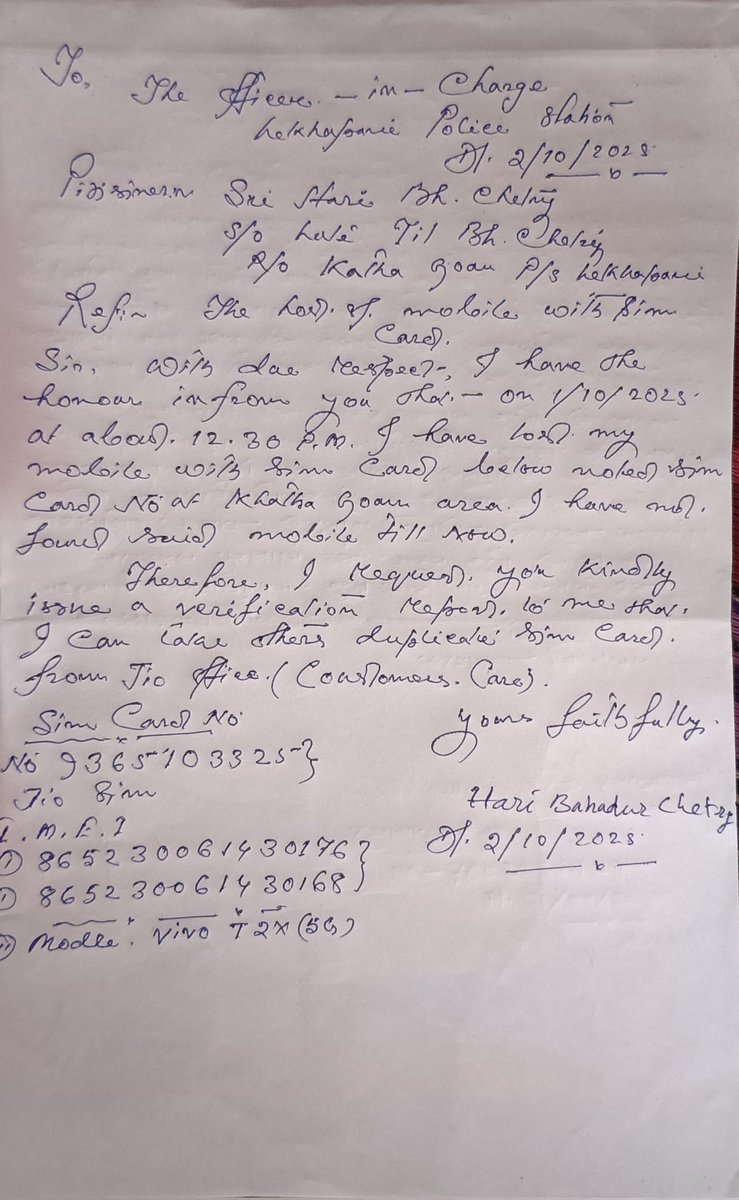 To,
The officer - in - Charge
Lekhapani Police Station
Dt. 2/10/2025
Sri Hari Bh. Chetry
S/o Late Til Bh. Chetry
R/o Katha Goan P/s Lekhapani
Ref:- The Lost. of. mobile with Sim
Card.
Sir, With due respect, I have the
honour infrom you that - on 1/10/2025.
at about. 12.30 P.M. I have lost my
mobile with Sim Card below noted Sim
Card No at Khatha Goan area. I have not.
found said mobile till Now.
Therefore, I request. you kindly
issue a verification report. to me that.
I can take others duplicate Sim Card.
from Jio office. (Coustomers. Care).
Sim Card No
yours faithfully.
No 9365103325}
Jio Sim
Hari Bahadur Chetry
I.M.E.I
Dt. 2/10/2025.
① 865230061430176}
① 865230061430168}
Modle: Vivo T2X (5G)